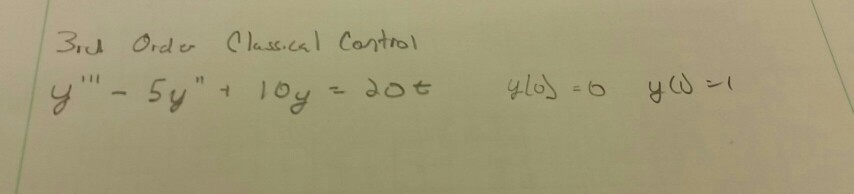 3rd Order Classical Control
y''' - 5y" + 10y = 20t y(0) = 0 y(1) = 1